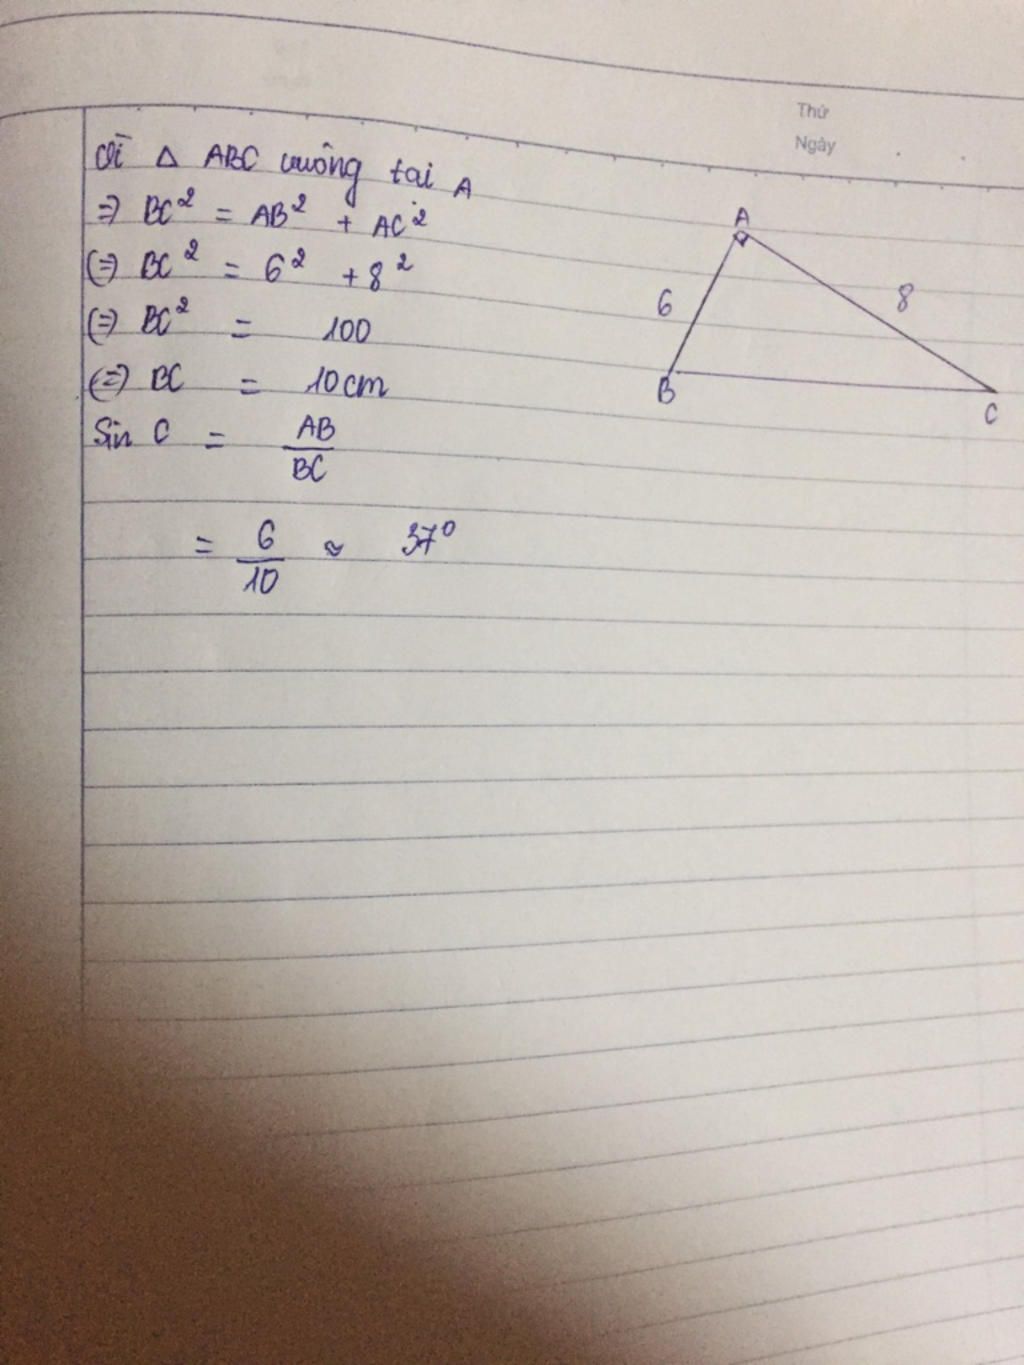 Thứ
Ngày
Vì Δ ABC vuông tại A
⇒ BC² = AB² + AC²
(⇒) BC² = 6² + 8²
(⇒) BC² = 100
(⇒) BC = 10cm
Sin C = AB/BC
= 6/10 ≈ 37⁰
A
6
8
B
C